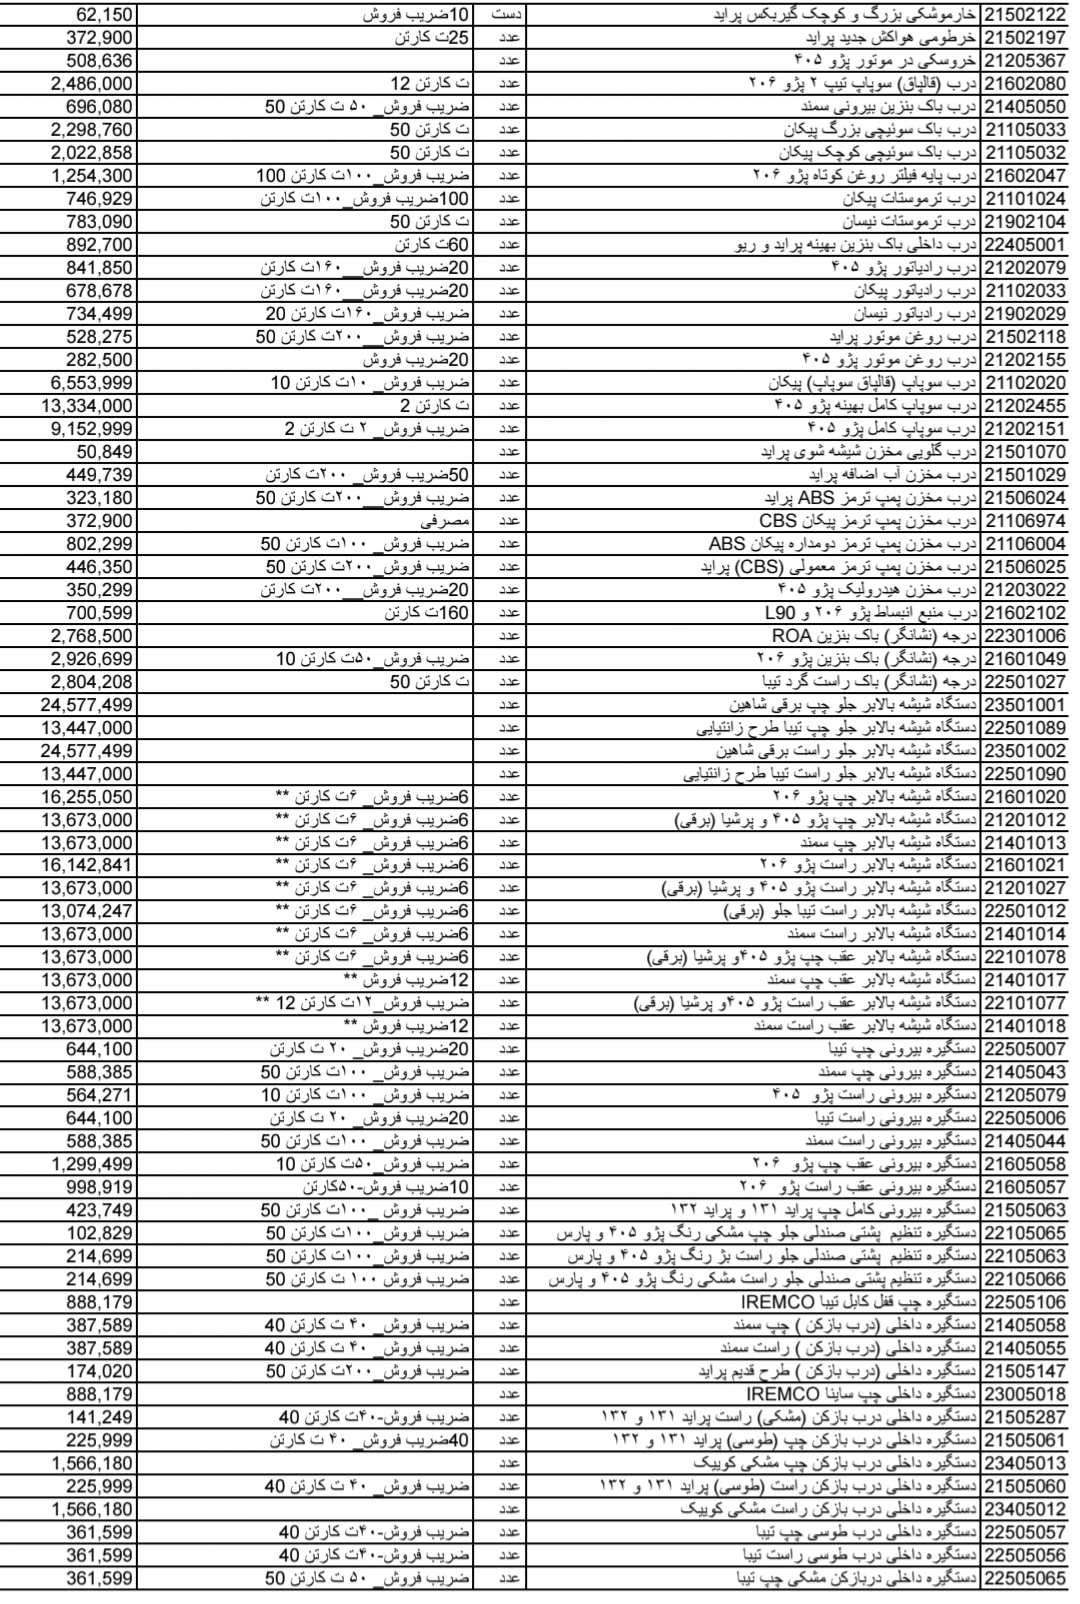 21502122 خارموشکی بزرگ و کوچک گیربکس پراید دست 10ضریب فروش 62,150
21502197 خرطومی هواکش جدید پراید عدد 25ت کارتن 372,900
21205367 خروسکی در موتور پژو ۴۰۵ عدد 508,636
21602080 درب (قالپاق) سوپاپ تیپ ۲ پژو ۲۰۶ عدد ت کارتن 12 2,486,000
21405050 درب باک بنزین بیرونی سمند عدد ضریب فروش_ ۵۰ ت کارتن 50 696,080
21105033 درب باک سوئیچی بزرگ پیکان عدد ت کارتن 50 2,298,760
21105032 درب باک سوئیچی کوچک پیکان عدد ت کارتن 50 2,022,858
21602047 درب پایه فیلتر روغن کوتاه پژو ۲۰۶ عدد ضریب فروش_۱۰۰ت کارتن 100 1,254,300
21101024 درب ترموستات پیکان عدد 100ضریب فروش_۱۰۰ت کارتن 746,929
21902104 درب ترموستات نیسان عدد ت کارتن 50 783,090
22405001 درب داخلی باک بنزین بهینه پراید و ریو عدد 60ت کارتن 892,700
21202079 درب رادیاتور پژو ۴۰۵ عدد 20ضریب فروش__۱۶۰ت کارتن 841,850
21102033 درب رادیاتور پیکان عدد 20ضریب فروش__۱۶۰ت کارتن 678,678
21902029 درب رادیاتور نیسان عدد ضریب فروش_۱۶۰ت کارتن 20 734,499
21502118 درب روغن موتور پراید عدد ضریب فروش__۲۰۰ت کارتن 50 528,275
21202155 درب روغن موتور پژو ۴۰۵ عدد 20ضریب فروش 282,500
21102020 درب سوپاپ (قالپاق سوپاپ) پیکان عدد ضریب فروش_ ۱۰ت کارتن 10 6,553,999
21202455 درب سوپاپ کامل بهینه پژو ۴۰۵ عدد ت کارتن 2 13,334,000
21202151 درب سوپاپ کامل پژو ۴۰۵ عدد ضریب فروش_ ۲ ت کارتن 2 9,152,999
21501070 درب گلویی مخزن شیشه شوی پراید عدد 50,849
21501029 درب مخزن آب اضافه پراید عدد 50ضریب فروش_ ۲۰۰ت کارتن 449,739
21506024 درب مخزن پمپ ترمز ABS پراید عدد ضریب فروش__۲۰۰ت کارتن 50 323,180
21106974 درب مخزن پمپ ترمز پیکان CBS عدد مصرفی 372,900
21106004 درب مخزن پمپ ترمز دومداره پیکان ABS عدد ضریب فروش_ ۱۰۰ت کارتن 50 802,299
21506025 درب مخزن پمپ ترمز معمولی (CBS) پراید عدد ضریب فروش_۲۰۰ت کارتن 50 446,350
21203022 درب مخزن هیدرولیک پژو ۴۰۵ عدد 20ضریب فروش__۲۰۰ت کارتن 350,299
21602102 درب منبع انبساط پژو ۲۰۶ و L90 عدد 160ت کارتن 700,599
22301006 درجه (نشانگر) باک بنزین ROA عدد 2,768,500
21601049 درجه (نشانگر) باک بنزین پژو ۲۰۶ عدد ضریب فروش_۵۰ت کارتن 10 2,926,699
22501027 درجه (نشانگر) باک راست گرد تیبا عدد ت کارتن 50 2,804,208
23501001 دستگاه شیشه بالابر جلو چپ برقی شاهین عدد 24,577,499
22501089 دستگاه شیشه بالابر جلو چپ تیبا طرح زانتیایی عدد 13,447,000
23501002 دستگاه شیشه بالابر جلو راست برقی شاهین عدد 24,577,499
22501090 دستگاه شیشه بالابر جلو راست تیبا طرح زانتیایی عدد 13,447,000
21601020 دستگاه شیشه بالابر چپ پژو ۲۰۶ عدد 6ضریب فروش_ ۶ت کارتن ** 16,255,050
21201012 دستگاه شیشه بالابر چپ پژو ۴۰۵ و پرشیا (برقی) عدد 6ضریب فروش_ ۶ت کارتن ** 13,673,000
21401013 دستگاه شیشه بالابر چپ سمند عدد 6ضریب فروش_ ۶ت کارتن ** 13,673,000
21601021 دستگاه شیشه بالابر راست پژو ۲۰۶ عدد 6ضریب فروش_ ۶ت کارتن ** 16,142,841
21201027 دستگاه شیشه بالابر راست پژو ۴۰۵ و پرشیا (برقی) عدد 6ضریب فروش_ ۶ت کارتن ** 13,673,000
22501012 دستگاه شیشه بالابر راست تیبا جلو (برقی) عدد 6ضریب فروش_ ۶ت کارتن ** 13,074,247
21401014 دستگاه شیشه بالابر راست سمند عدد 6ضریب فروش_ ۶ت کارتن ** 13,673,000
22101078 دستگاه شیشه بالابر عقب چپ پژو ۴۰۵و پرشیا (برقی) عدد 6ضریب فروش_ ۶ت کارتن ** 13,673,000
21401017 دستگاه شیشه بالابر عقب چپ سمند عدد 12ضریب فروش ** 13,673,000
22101077 دستگاه شیشه بالابر عقب راست پژو ۴۰۵و پرشیا (برقی) عدد ضریب فروش_۱۲ت کارتن 12 ** 13,673,000
21401018 دستگاه شیشه بالابر عقب راست سمند عدد 12ضریب فروش ** 13,673,000
22505007 دستگیره بیرونی چپ تیبا عدد 20ضریب فروش_ ۲۰ ت کارتن 644,100
21405043 دستگیره بیرونی چپ سمند عدد ضریب فروش_ ۱۰۰ت کارتن 50 588,385
21205079 دستگیره بیرونی راست پژو ۴۰۵ عدد ضریب فروش_ ۱۰۰ت کارتن 10 564,271
22505006 دستگیره بیرونی راست تیبا عدد 20ضریب فروش_ ۲۰ ت کارتن 644,100
21405044 دستگیره بیرونی راست سمند عدد ضریب فروش_ ۱۰۰ت کارتن 50 588,385
21605058 دستگیره بیرونی عقب چپ پژو ۲۰۶ عدد ضریب فروش_۵۰ت کارتن 10 1,299,499
21605057 دستگیره بیرونی عقب راست پژو ۲۰۶ عدد 10ضریب فروش-۵۰کارتن 998,919
21505063 دستگیره بیرونی کامل چپ پراید ۱۳۱ و پراید ۱۳۲ عدد ضریب فروش_ ۱۰۰ت کارتن 50 423,749
22105065 دستگیره تنظیم پشتی صندلی جلو چپ مشکی رنگ پژو ۴۰۵ و پارس عدد ضریب فروش_۱۰۰ت کارتن 50 102,829
22105063 دستگیره تنظیم پشتی صندلی جلو راست بژ رنگ پژو ۴۰۵ و پارس عدد ضریب فروش_۱۰۰ت کارتن 50 214,699
22105066 دستگیره تنظیم پشتی صندلی جلو راست مشکی رنگ پژو ۴۰۵ و پارس عدد ضریب فروش ۱۰۰ ت کارتن 50 214,699
22505106 دستگیره چپ قفل کابل تیبا IREMCO عدد 888,179
21405058 دستگیره داخلی (درب بازکن ) چپ سمند عدد ضریب فروش_ ۴۰ ت کارتن 40 387,589
21405055 دستگیره داخلی (درب بازکن ) راست سمند عدد ضریب فروش_ ۴۰ ت کارتن 40 387,589
21505147 دستگیره داخلی (درب بازکن ) طرح قدیم پراید عدد ضریب فروش_۲۰۰ت کارتن 50 174,020
23005018 دستگیره داخلی چپ ساینا IREMCO عدد 888,179
21505287 دستگیره داخلی درب بازکن (مشکی) راست پراید ۱۳۱ و ۱۳۲ عدد ضریب فروش-۴۰ت کارتن 40 141,249
21505061 دستگیره داخلی درب بازکن چپ (طوسی) پراید ۱۳۱ و ۱۳۲ عدد 40ضریب فروش_ ۴۰ ت کارتن 225,999
23405013 دستگیره داخلی درب بازکن چپ مشکی کوییک عدد 1,566,180
21505060 دستگیره داخلی درب بازکن راست (طوسی) پراید ۱۳۱ و ۱۳۲ عدد ضریب فروش_ ۴۰ ت کارتن 40 225,999
23405012 دستگیره داخلی درب بازکن راست مشکی کوییک عدد 1,566,180
22505057 دستگیره داخلی درب طوسی چپ تیبا عدد ضریب فروش-۴۰ت کارتن 40 361,599
22505056 دستگیره داخلی درب طوسی راست تیبا عدد ضریب فروش-۴۰ت کارتن 40 361,599
22505065 دستگیره داخلی دربازکن مشکی چپ تیبا عدد ضریب فروش_ ۵۰ ت کارتن 50 361,599